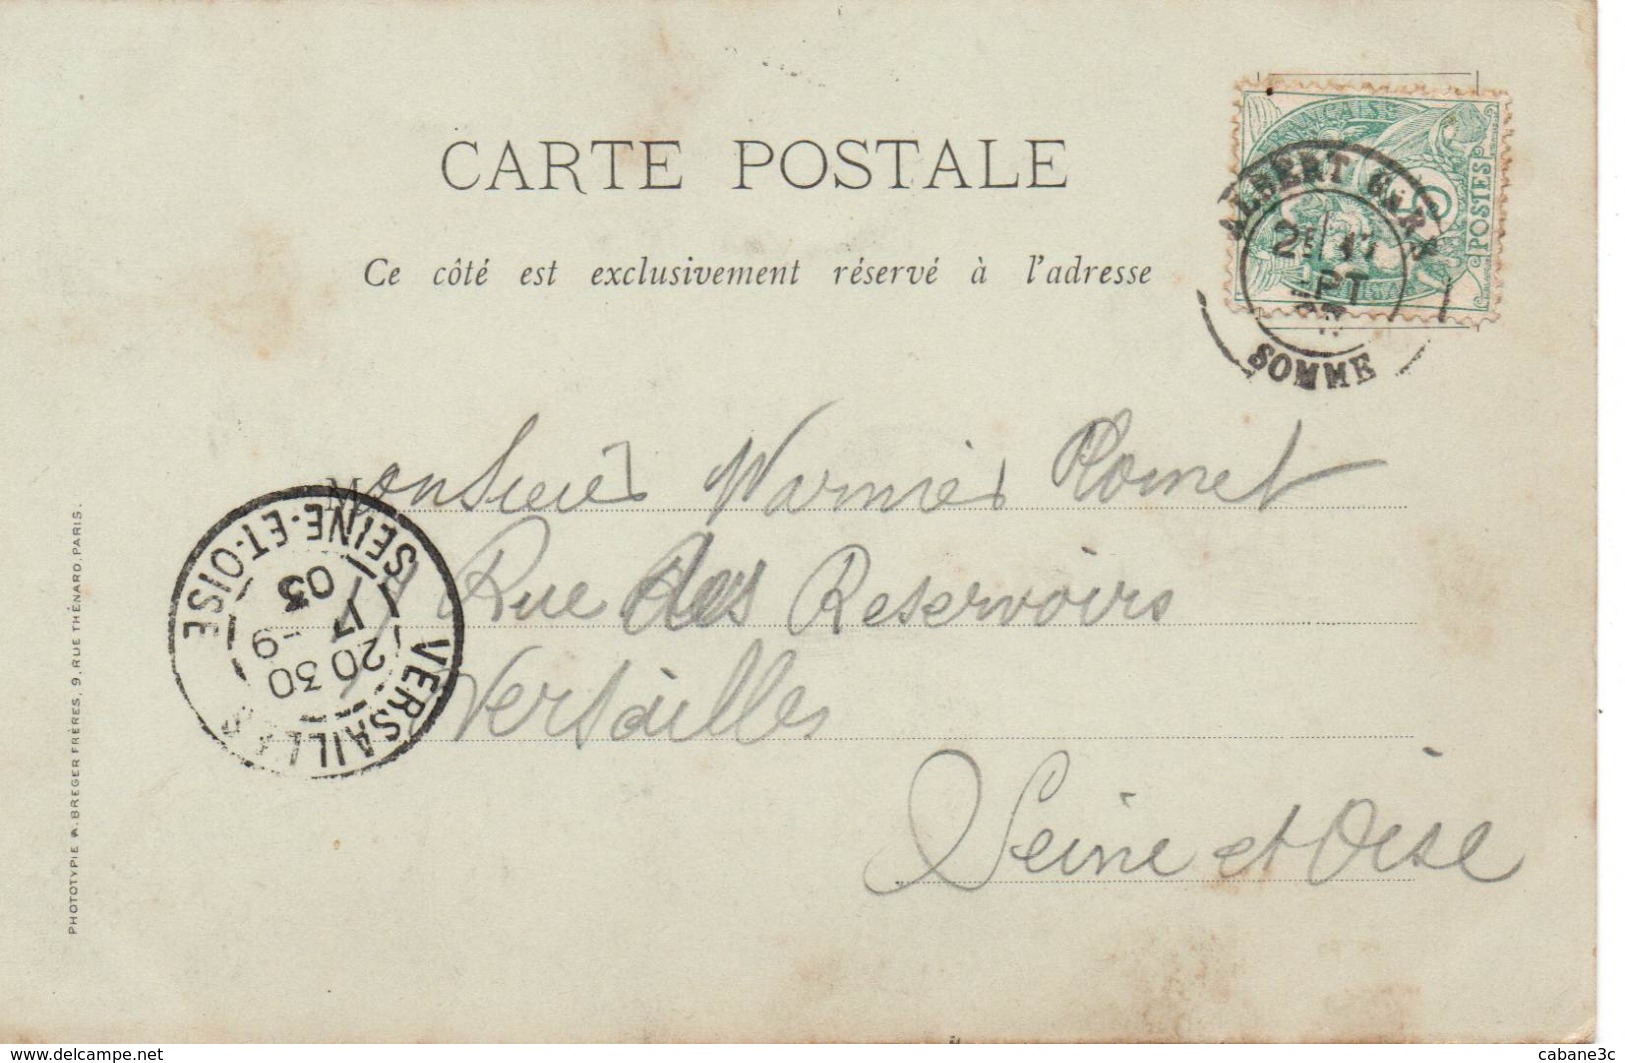 CARTE POSTALE
Ce côté est exclusivement réservé à l'adresse
POSTES
ALBERT GARE
SOMME
Monsieur Warnier
Rue des Reservoirs
Versailles
Seine et Oise
VERSAILLES
SEINE-ET-OISE
20 30
17 -9
03
PHOTOTYPIE A. BREGER FRÈRES, 9, RUE THÉNARD, PARIS.
www.delcampe.net
cabane3c